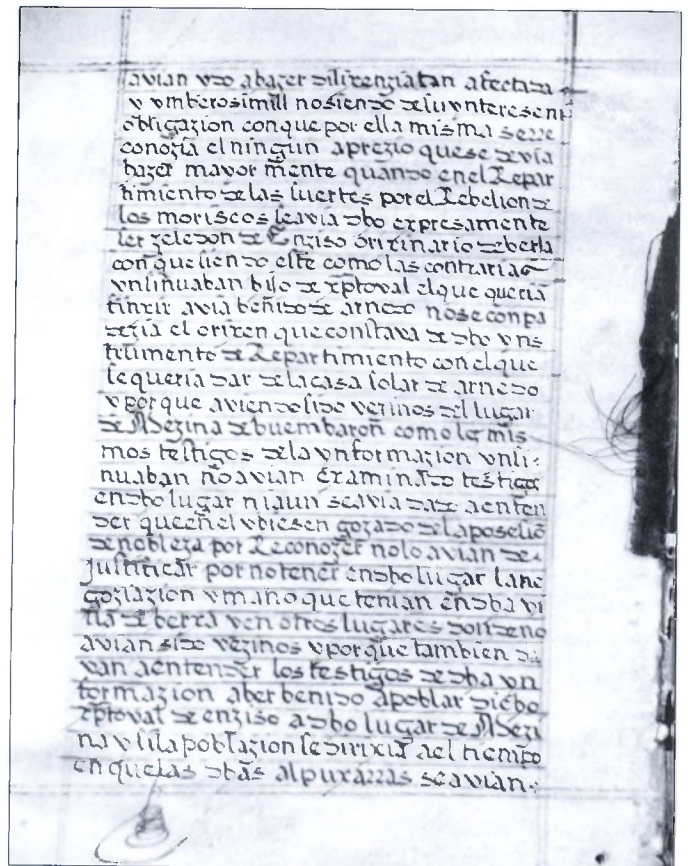 avian ydo abazer dilixenzia tan afectada
y ynberosimill no siendo de su ynteres en
obligazion con que por ella misma se rre
conozia el ningun aprezio que se devia
hazer mayor mente quando en el Repar
timiento de las suertes por el Rebelion de
los moriscos se avia dho expresamente
ser zeledon de Enziso orixinario de berla
con que siendo este como las contrarias
ynsinuaban hijo de xptoval el que queria
finxir avia benido de arnedo no se conpa
dezia el orixen que constava de dho yns
trumento de Repartimiento con el que
se queria dar de la casa solar de arnedo
y porque aviendo sido vezinos del lugar
de Mezina de buembaron como los mis
mos testigos de la ynformazion ynsi-
nuaban no avian examinado testigo
en dho lugar ni aun se avia dado a enten
der que en el ubiesen gozado de la posesion
de nobleza por Reconozer no lo avian de
justificar por no tener en dho lugar la ne
goziazion y mano que tenian en dha vi
lla de berxa y en otros lugares donde no
avian sido vezinos y porque tambien da
van a entender los testigos de dha yn
formazion aber benido a poblar dicho
xptoval de enziso a dho lugar de Mezi
na y si la poblazion se dirixia a el tiempo
en que las dhas alpuxarras se avian